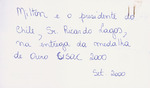 Milton e o presidente do
Chile, Sr. Ricardo Lagos,
na entrega da medalha
de Ouro 2000
Set 2000